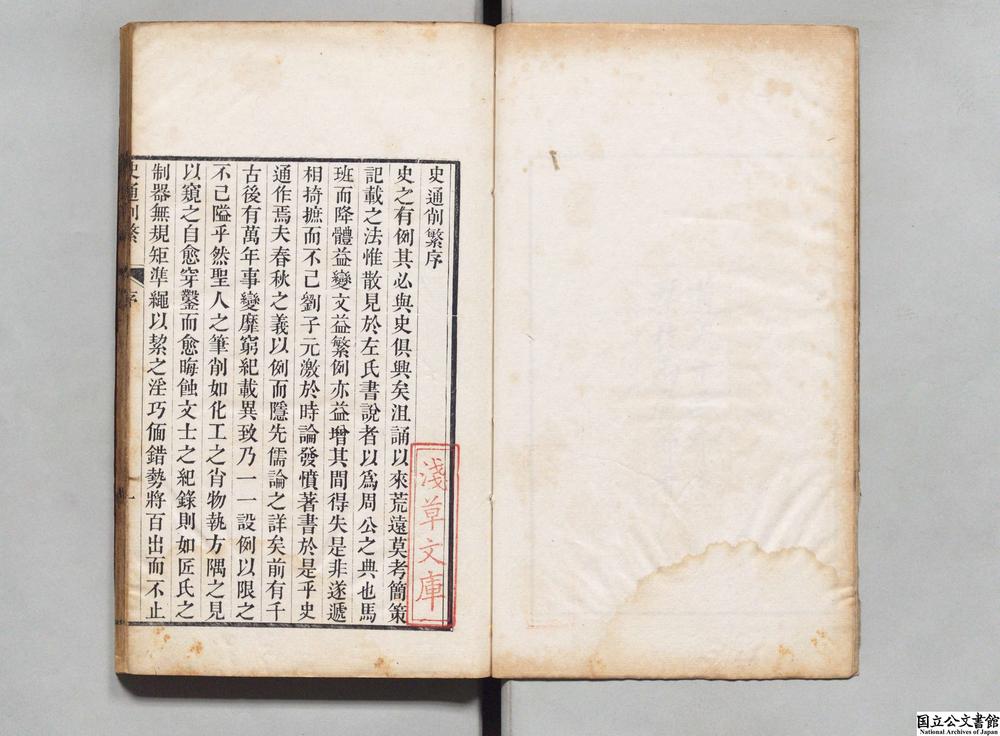 史通削繁序
史之有例其必與史俱興矣沮誦以來荒遠莫考簡策
記載之法惟散見於左氏書說者以爲周公之典也馬
班而降體益變文益繁例亦益增其間得失是非遂遞
相掎摭而不已劉子元激於時論發憤著書於是乎史
通作焉夫春秋之義以例而隱先儒論之詳矣前有千
古後有萬年事變靡窮紀載異致乃一一設例以限之
不已隘乎然聖人之筆削如化工之肖物執方隅之見
以窺之自愈穿鑿而愈晦蝕文士之紀錄則如匠氏之
制器無規矩準繩以絜之淫巧偭錯勢將百出而不止
史通削繁
序
一
淺草文庫
国立公文書館
National Archives of Japan